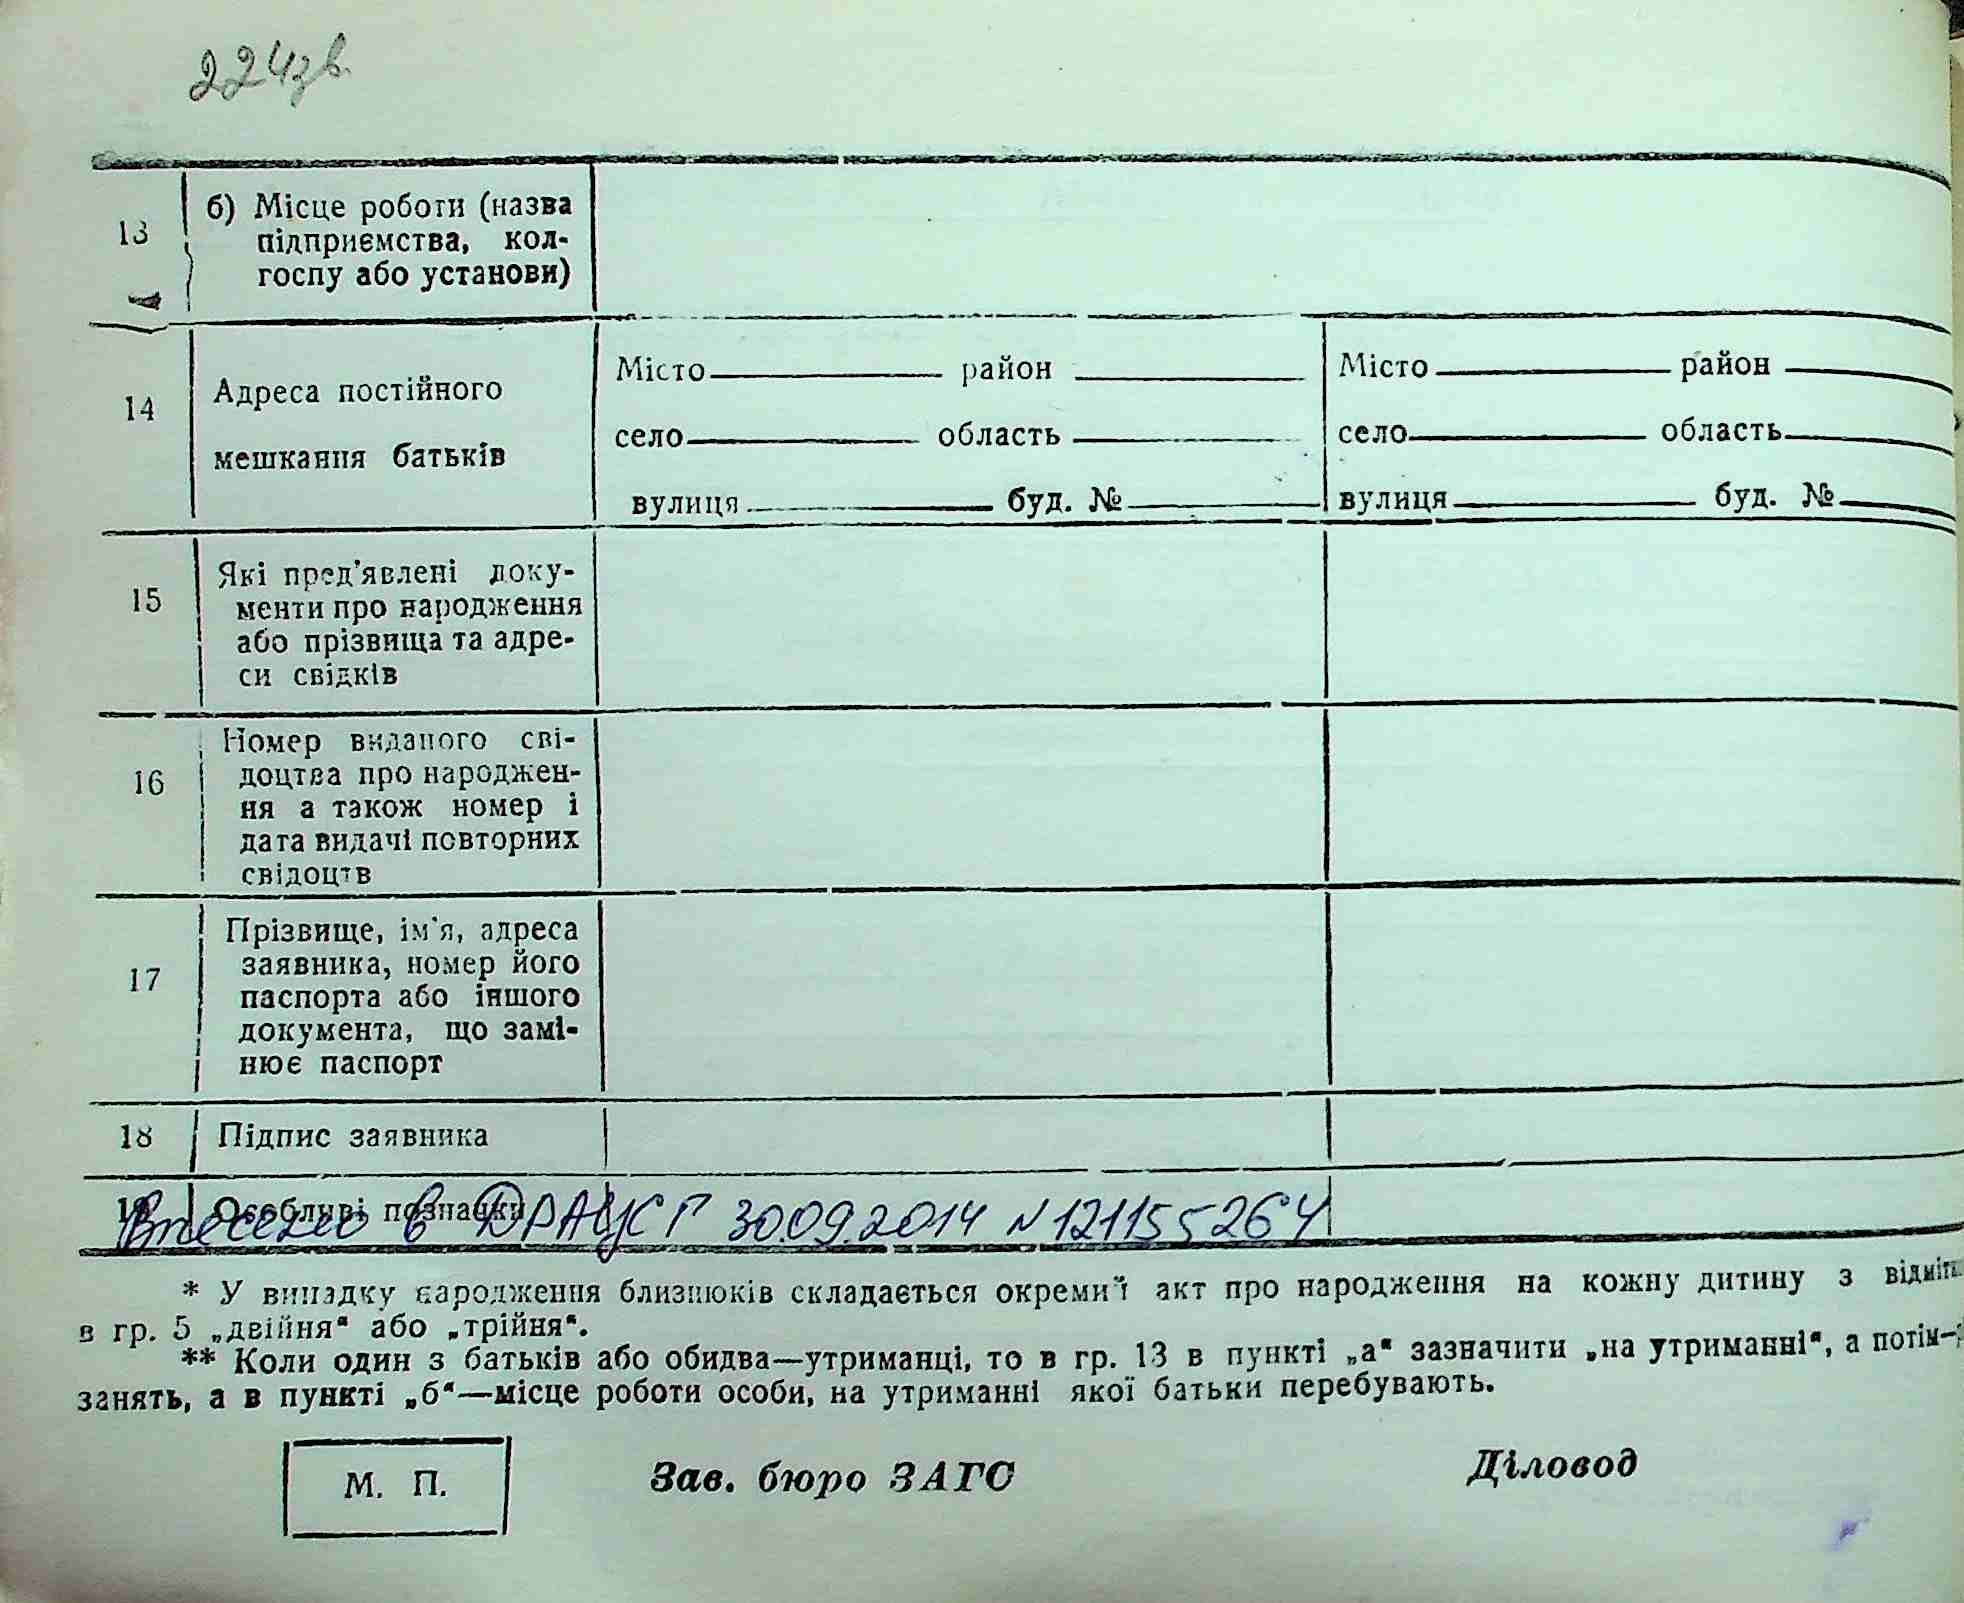 224зв.
13 б) Місце роботи (назва
підприємства, кол-
госпу або установи)
14 Адреса постійного
мешкання батьків
Місто район
село область
вулиця буд. №
Місто район
село область
вулиця буд. №
15 Які пред'явлені доку-
менти про народження
або прізвища та адре-
си свідків
16 Номер виданого сві-
доцтва про народжен-
ня а також номер і
дата видачі повторних
свідоцтв
17 Прізвище, ім'я, адреса
заявника, номер його
паспорта або іншого
документа, що замі-
нює паспорт
18 Підпис заявника
19 Особливі позначки
Внесено в ДРАЦСГ 30.09.2014 N 121155264
* У випадку народження близнюків складається окремий акт про народження на кожну дитину з відміт
в гр. 5 „двійня“ або „трійня“.
** Коли один з батьків або обидва—утриманці, то в гр. 13 в пункті „а“ зазначити „на утриманні“, а потім—
занять, а в пункті „б“—місце роботи особи, на утриманні якої батьки перебувають.
М. П.
Зав. бюро ЗАГС
Діловод